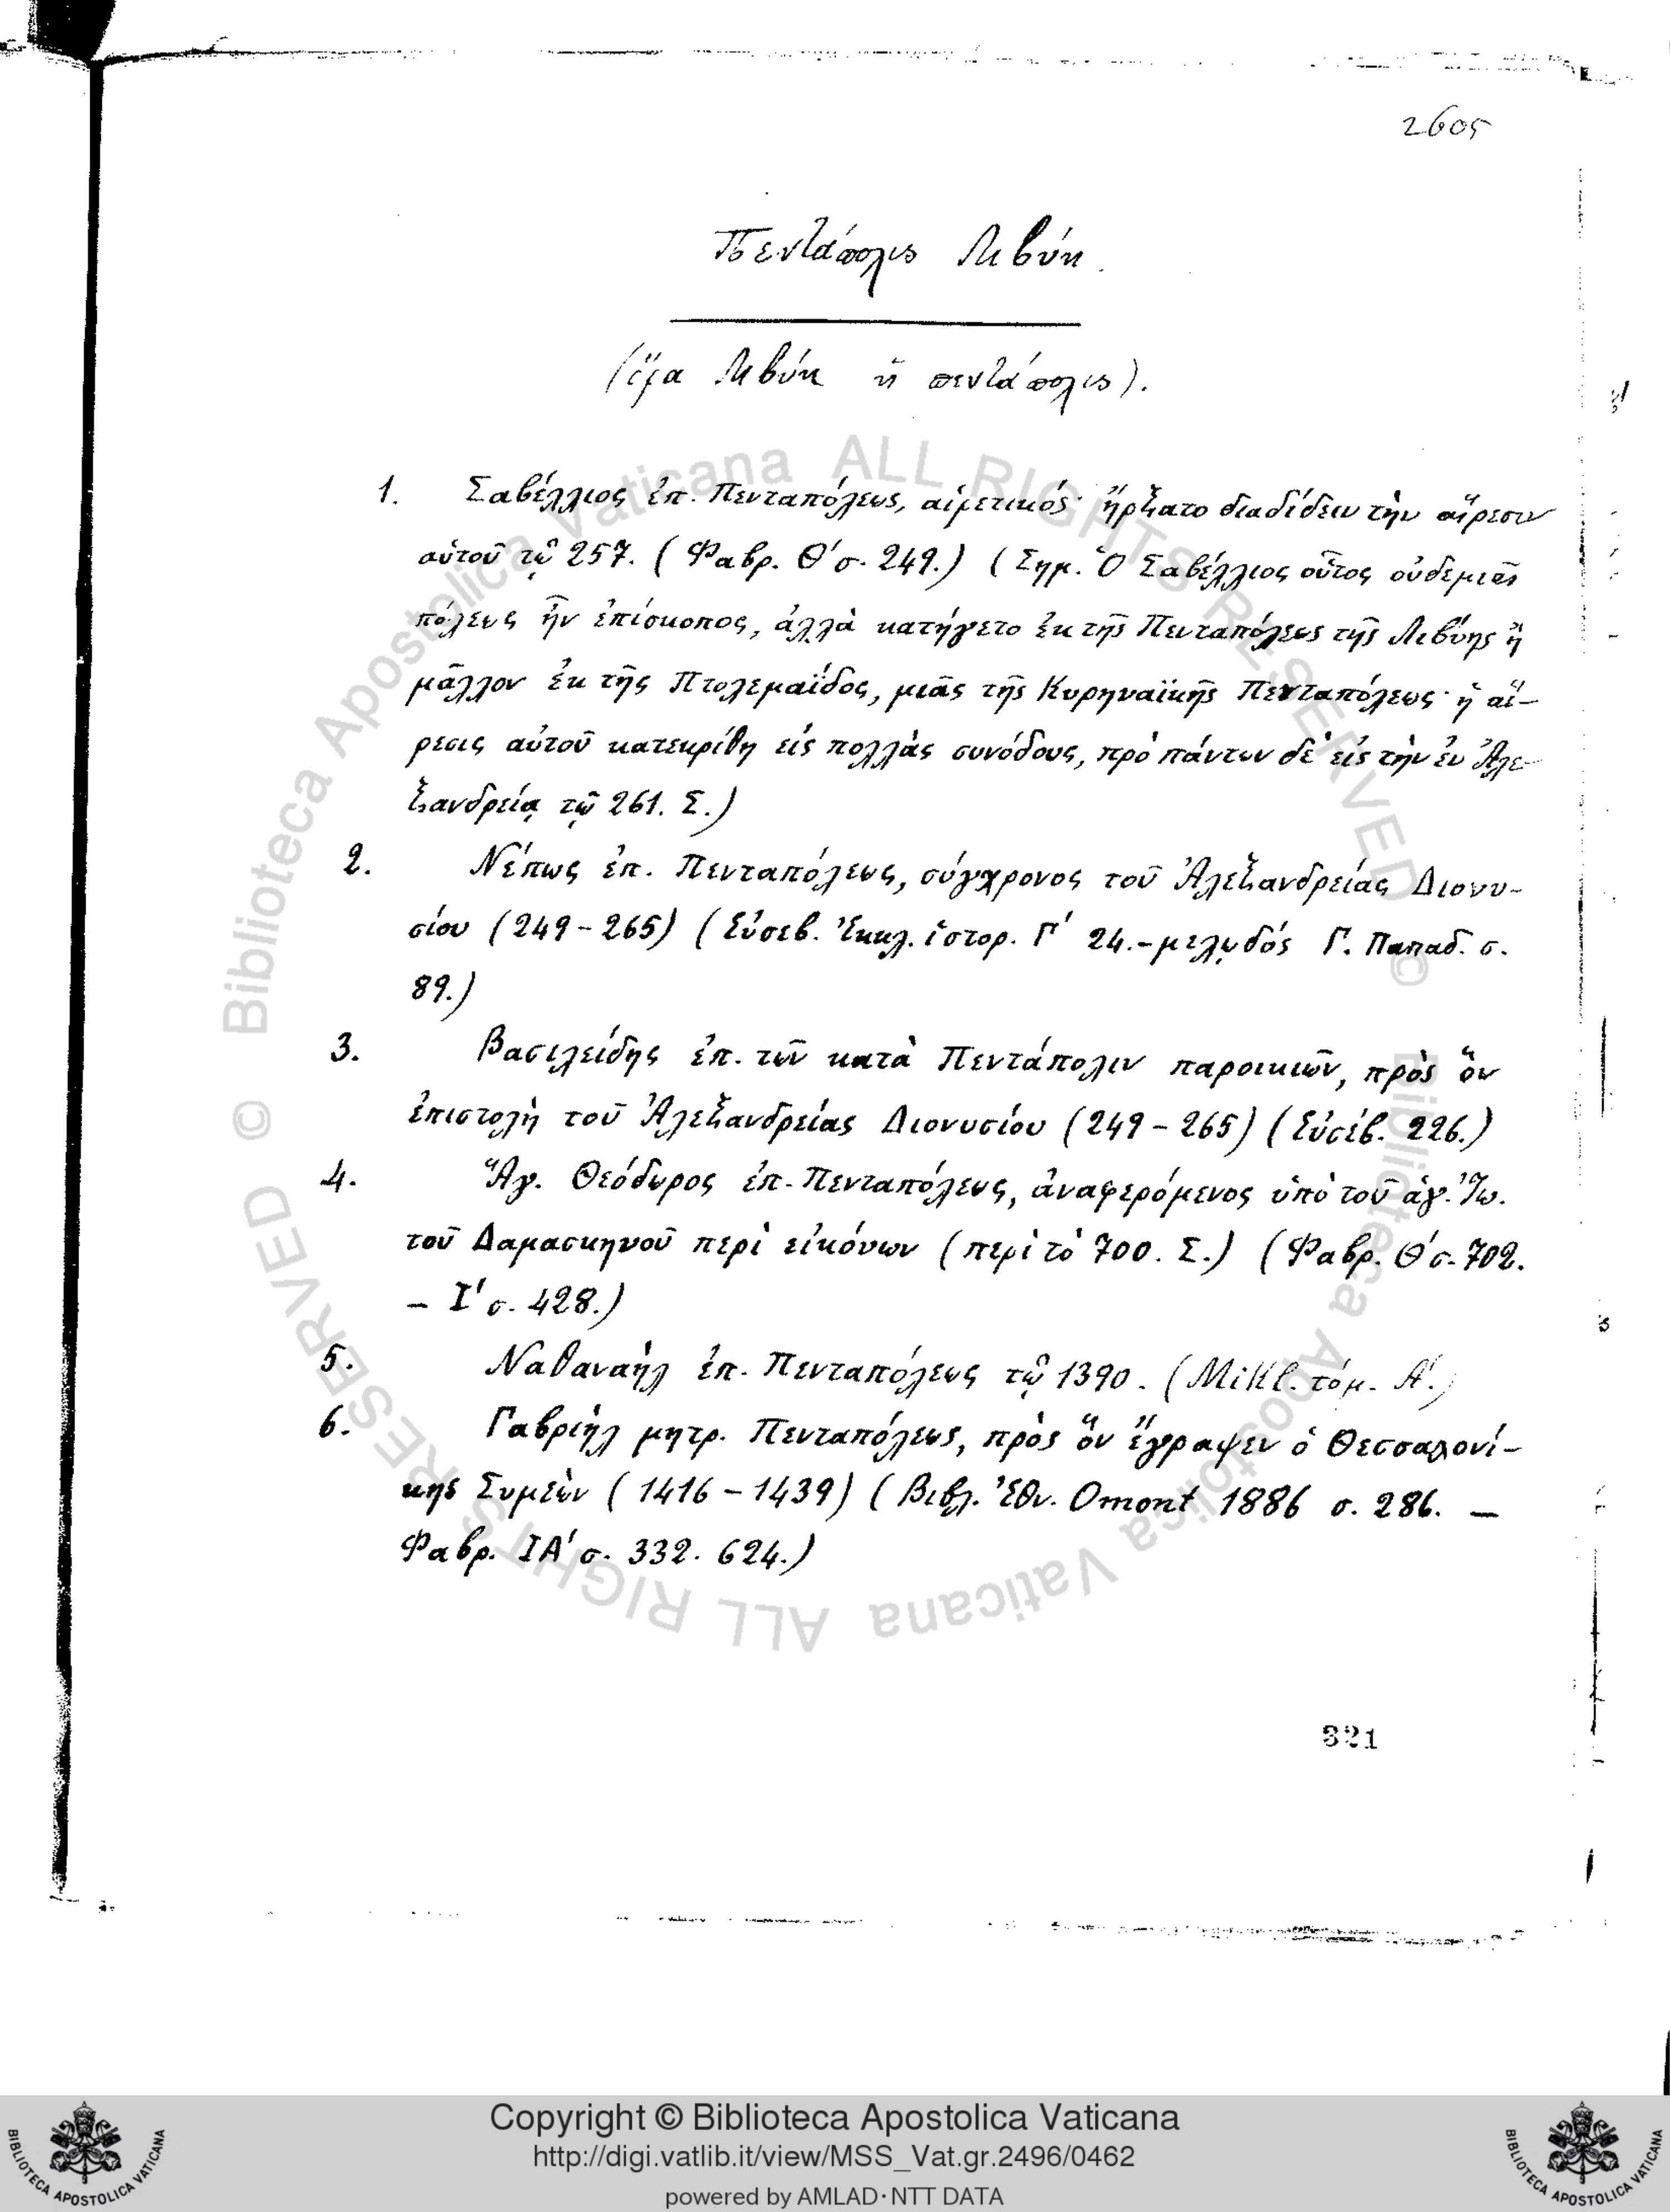 2605
Πεντάπολις Λιβύη
(ὅρα Λιβύη ἢ πεντάπολις).
1. Σαβέλλιος ἐπ. Πενταπόλεως, αἱρετικός· ἤρξατο διαδίδειν τὴν αἵρεσιν
αὑτοῦ τῷ 257. (Φαβρ. Θ' σ. 249.) (Σημ. Ὁ Σαβέλλιος οὗτος οὐδεμιᾶς
πόλεως ἦν ἐπίσκοπος, ἀλλὰ κατήγετο ἐκ τῆς Πενταπόλεως τῆς Λιβύης ἢ
μᾶλλον ἐκ τῆς Πτολεμαΐδος, μιᾶς τῆς Κυρηναϊκῆς Πενταπόλεως· ἡ αἵ-
ρεσις αὐτοῦ κατεκρίθη εἰς πολλὰς συνόδους, πρὸ πάντων δὲ εἰς τὴν ἐν Ἀλε-
ξανδρείᾳ τῷ 261. Σ.)
2. Νέπως ἐπ. Πενταπόλεως, σύγχρονος τοῦ Ἀλεξανδρείας Διονυ-
σίου (249-265) (Εὐσεβ. Ἐκκλ. ἱστορ. Γ' 24.-μελῳδός Γ. Παπαδ. σ.
89.)
3. Βασιλείδης ἐπ. τῶν κατὰ Πεντάπολιν παροικιῶν, πρὸς ὃν
ἐπιστολὴ τοῦ Ἀλεξανδρείας Διονυσίου (249-265) (Εὐσέβ. 226.)
4. Ἅγ. Θεόδωρος ἐπ. Πενταπόλεως, ἀναφερόμενος ὑπὸ τοῦ ἁγ. Ἰω.
τοῦ Δαμασκηνοῦ περὶ εἰκόνων (περὶ τὸ 700. Σ.) (Φαβρ. Θ' σ. 702.
- Ι' σ. 428.)
5. Ναθαναὴλ ἐπ. Πενταπόλεως τῷ 1390. (Mikl. τόμ. Α'.)
6. Γαβριὴλ μητρ. Πενταπόλεως, πρὸς ὃν ἔγραψεν ὁ Θεσσαλονί-
κης Συμεὼν (1416-1439) (Βιβλ. Ἐθν. Omont 1886 σ. 286. —
Φαβρ. ΙΑ' σ. 332. 624.)
321
© Biblioteca Apostolica Vaticana ALL RIGHTS RESERVED
© Biblioteca Apostolica Vaticana ALL RIGHTS RESERVED
BIBLIOTECA APOSTOLICA VATICANA
Copyright © Biblioteca Apostolica Vaticana
http://digi.vatlib.it/view/MSS_Vat.gr.2496/0462
powered by AMLAD·NTT DATA
BIBLIOTECA APOSTOLICA VATICANA